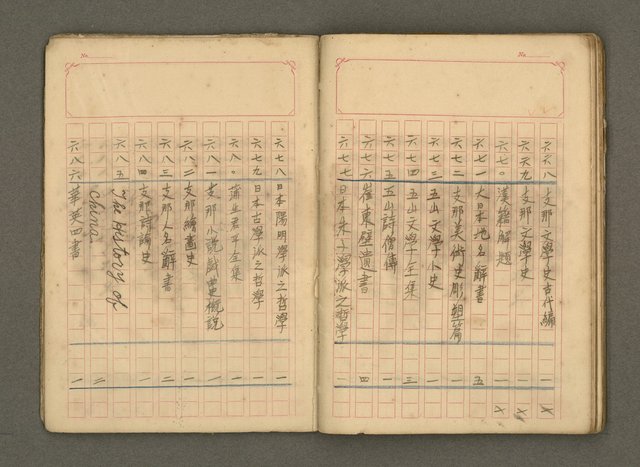 No.
六六八 支那文學史古代編 一 ×
六六九 支那文學史 一 ×
六七〇 漢籍解題 一 ×
六七一 大日本地名辭書 五
六七二 支那美術史彫塑篇 一
六七三 五山文學小史 一
六七四 五山文學全集 三
六七五 五山詩僧傳 一
六七六 崔東壁遺書 四
六七七 日本朱子學派之哲學 一
No.
六七八 日本陽明學派之哲學 一
六七九 日本古學派之哲學 一
六八〇 蒲生君平全集 一
六八一 支那小說戲曲概說 一
六八二 支那繪畫史 一
六八三 支那人名辭書 一
六八四 支那詩論史 一
六八五 The History of
China 二
六八六 華英四書 一